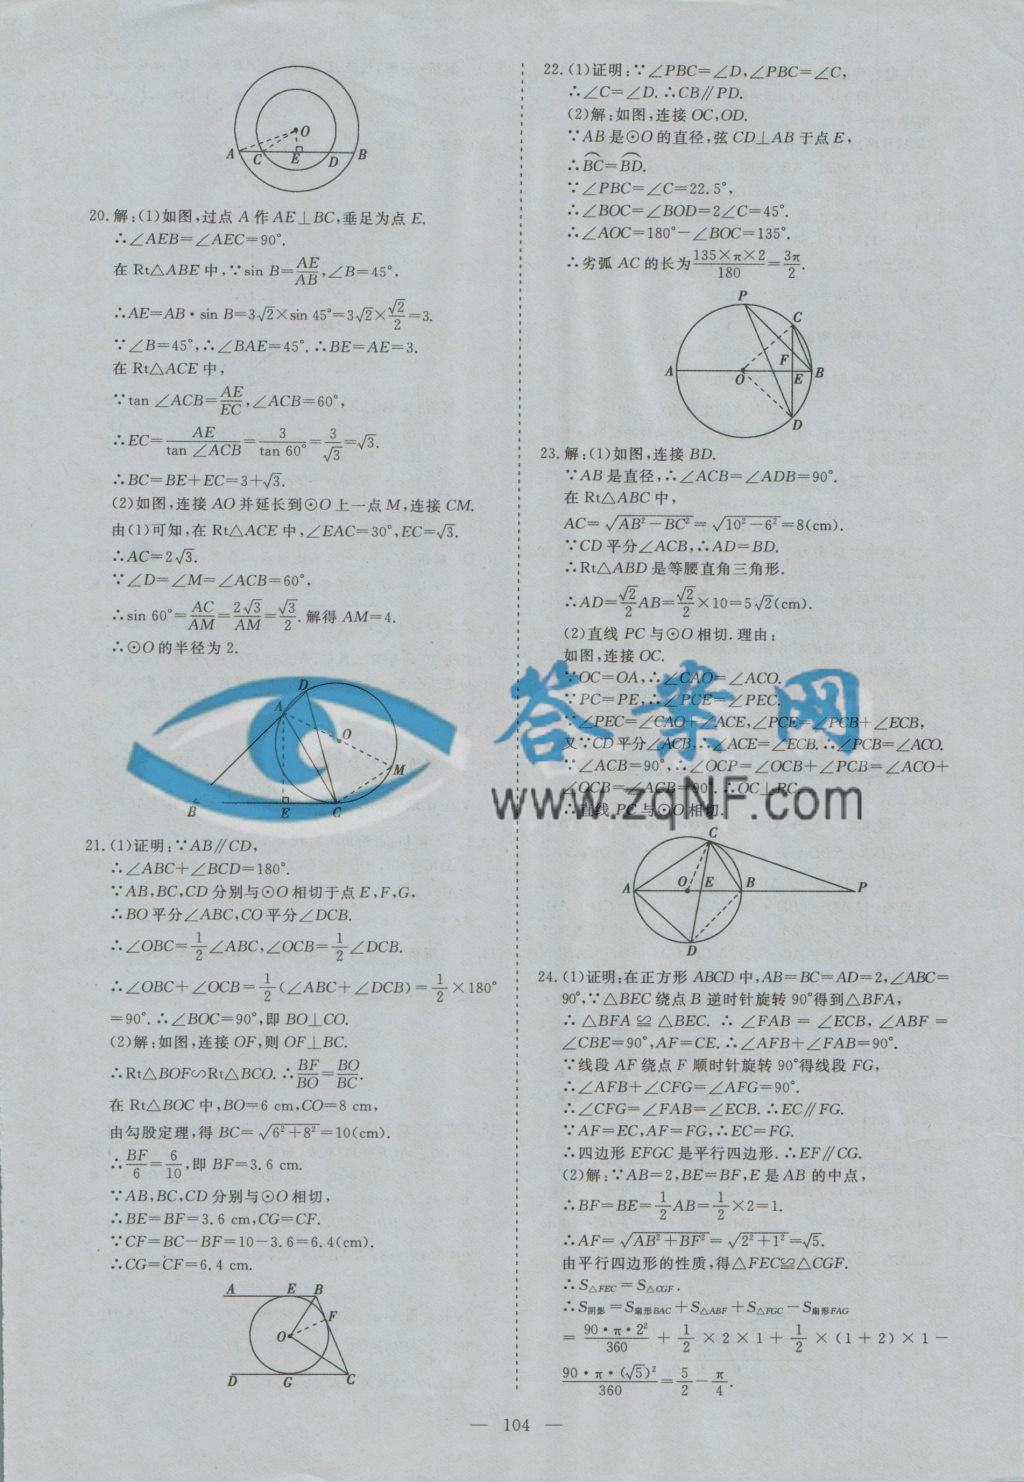 O
A C E D B
20. 解:(1)如图,过点 A 作 AE⊥BC,垂足为点 E.
∴∠AEB=∠AEC=90°.
在 Rt△ABE 中,∵sin B=AE/AB,∠B=45°,
∴AE=AB·sin B=3√2×sin 45°=3√2×√2/2=3.
∵∠B=45°,∴∠BAE=45°.∴BE=AE=3.
在 Rt△ACE 中,
∵tan ∠ACB=AE/EC,∠ACB=60°,
∴EC=AE/tan ∠ACB=3/tan 60°=3/√3=√3.
∴BC=BE+EC=3+√3.
(2)如图,连接 AO 并延长到⊙O 上一点 M,连接 CM.
由(1)可知,在 Rt△ACE 中,∠EAC=30°,EC=√3.
∴AC=2√3.
∵∠D=∠M=∠ACB=60°,
∴sin 60°=AC/AM=2√3/AM=√3/2.解得 AM=4.
∴⊙O 的半径为 2.
D
A
O
M
B E C
21. (1)证明:∵AB∥CD,
∴∠ABC+∠BCD=180°.
∵AB,BC,CD 分别与⊙O 相切于点 E,F,G,
∴BO 平分∠ABC,CO 平分∠DCB.
∴∠OBC=1/2∠ABC,∠OCB=1/2∠DCB.
∴∠OBC+∠OCB=1/2(∠ABC+∠DCB)=1/2×180°
=90°.∴∠BOC=90°,即 BO⊥CO.
(2)解:如图,连接 OF,则 OF⊥BC.
∴Rt△BOF∽Rt△BCO.∴BF/BO=BO/BC.
在 Rt△BOC 中,BO=6 cm,CO=8 cm,
由勾股定理,得 BC=√(6²+8²)=10(cm).
∴BF/6=6/10,即 BF=3.6 cm.
∵AB,BC,CD 分别与⊙O 相切,
∴BE=BF=3.6 cm,CG=CF.
∵CF=BC-BF=10-3.6=6.4(cm).
∴CG=CF=6.4 cm.
A E B
F
O
D G C
22. (1)证明:∵∠PBC=∠D,∠PBC=∠C,
∴∠C=∠D.∴CB∥PD.
(2)解:如图,连接 OC,OD.
∵AB 是⊙O 的直径,弦 CD⊥AB 于点 E,
∴BC=BD.
∵∠PBC=∠C=22.5°,
∴∠BOC=∠BOD=2∠C=45°.
∴∠AOC=180°-∠BOC=135°.
∴劣弧 AC 的长为135×π×2/180=3π/2.
P
C
F
A O E B
D
23. 解:(1)如图,连接 BD.
∵AB 是直径,∴∠ACB=∠ADB=90°.
在 Rt△ABC 中,
AC=√(AB²-BC²)=√(10²-6²)=8(cm).
∵CD 平分∠ACB,∴AD=BD.
∴Rt△ABD 是等腰直角三角形.
∴AD=√2/2AB=√2/2×10=5√2(cm).
(2)直线 PC 与⊙O 相切.理由:
如图,连接 OC.
∵OC=OA,∴∠CAO=∠ACO.
∵PC=PE,∴∠PCE=∠PEC.
∵∠PEC=∠CAO+∠ACE,∠PCE=∠PCB+∠ECB,
又∵CD 平分∠ACB,∴∠ACE=∠ECB.∴∠PCB=∠ACO.
∵∠ACB=90°,∴∠OCP=∠OCB+∠PCB=∠ACO+
∠OCB=∠ACB=90°.∴OC⊥PC.
∴直线 PC 与⊙O 相切.
答案网
www.zqNF.com
C
A O E B P
D
24. (1)证明:在正方形 ABCD 中,AB=BC=AD=2,∠ABC=
90°,∵△BEC 绕点 B 逆时针旋转 90°得到△BFA,
∴△BFA≌△BEC.∴∠FAB=∠ECB,∠ABF=
∠CBE=90°,AF=CE.∴∠AFB+∠FAB=90°.
∵线段 AF 绕点 F 顺时针旋转 90°得线段 FG,
∴∠AFB+∠CFG=∠AFG=90°.
∴∠CFG=∠FAB=∠ECB.∴EC∥FG.
∵AF=EC,AF=FG,∴EC=FG.
∴四边形 EFGC 是平行四边形.∴EF∥CG.
(2)解:∵AB=2,BE=BF,E 是 AB 的中点,
∴BF=BE=1/2AB=1/2×2=1.
∴AF=√(AB²+BF²)=√(2²+1²)=√5.
由平行四边形的性质,得△FEC≌△CGF.
∴S△FEC=S△CGF.
∴S阴影=S扇形BAC+S△ABF+S△FGC-S扇形FAG
=90·π·2²/360+1/2×2×1+1/2×(1+2)×1-
90·π·(√5)²/360=5/2-π/4.
— 104 —